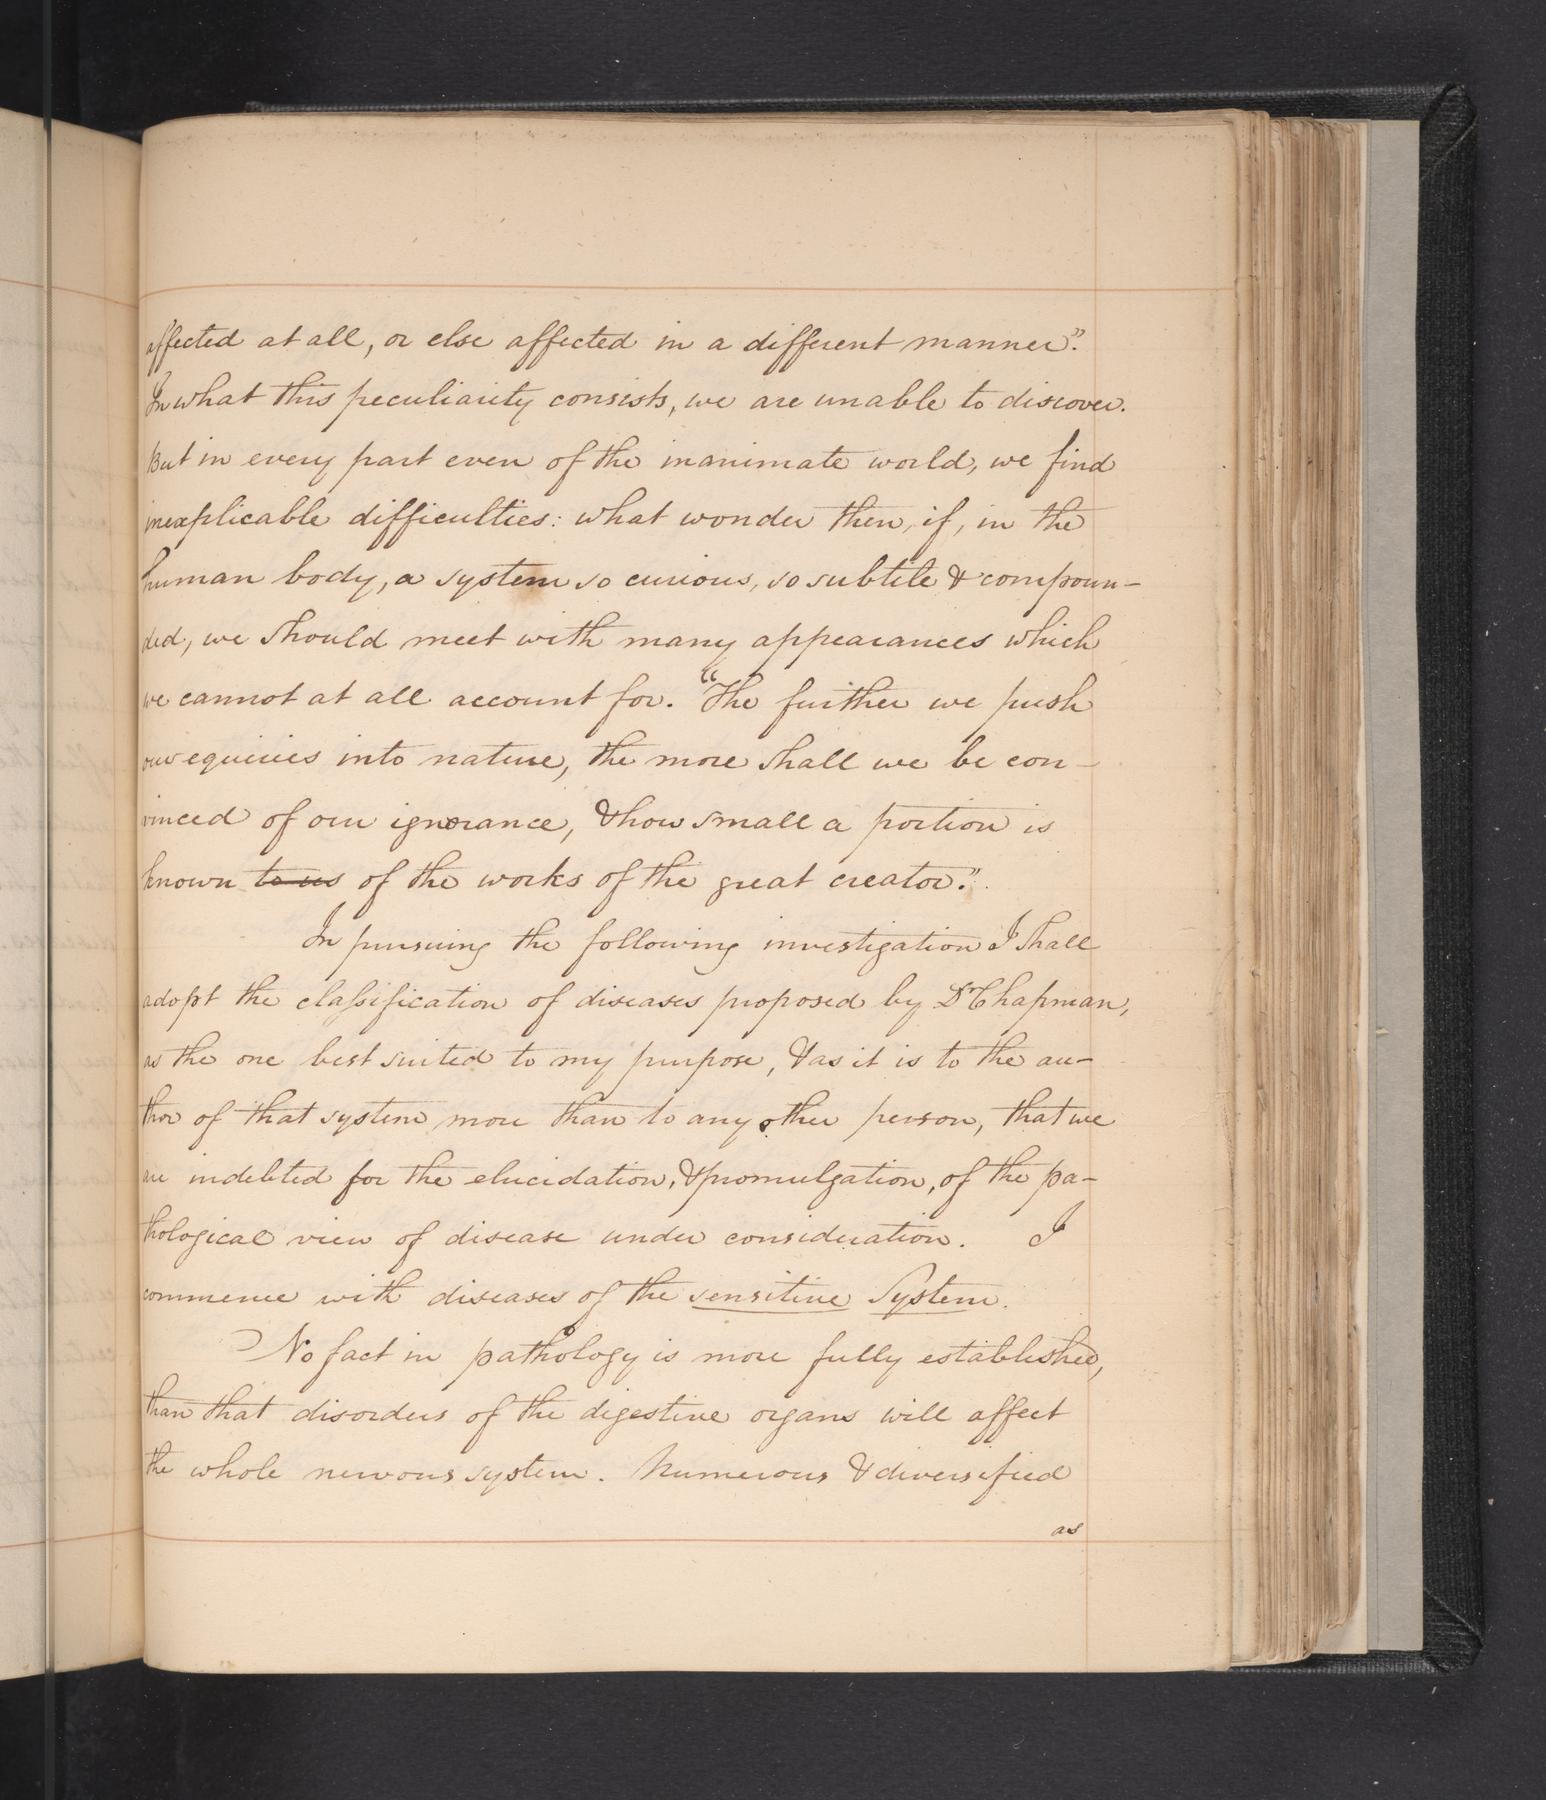 affected at all, or else affected in a different manner".
In what this peculiarity consists, we are unable to discover.
But in every part even of the inanimate world, we find
inexplicable difficulties: what wonder then, if, in the
human body, a system so curious, so subtile & compoun-
ded, we should meet with many appearances which
we cannot at all account for. "The further we push
our equiries into nature, the more shall we be con-
vinced of our ignorance, & how small a portion is
known to us of the works of the great creator."
In pursuing the following investigation I shall
adopt the classification of diseases proposed by Dr Chapman,
as the one best suited to my purpose, & as it is to the au-
thor of that system more than to any other person, that we
are indebted for the elucidation, & promulgation, of the pa-
thological view of disease under consideration. I
commence with diseases of the sensitive System.
No fact in pathology is more fully established,
than that disorders of the digestive organs will affect
the whole nervous system. Numerous & diversified
as